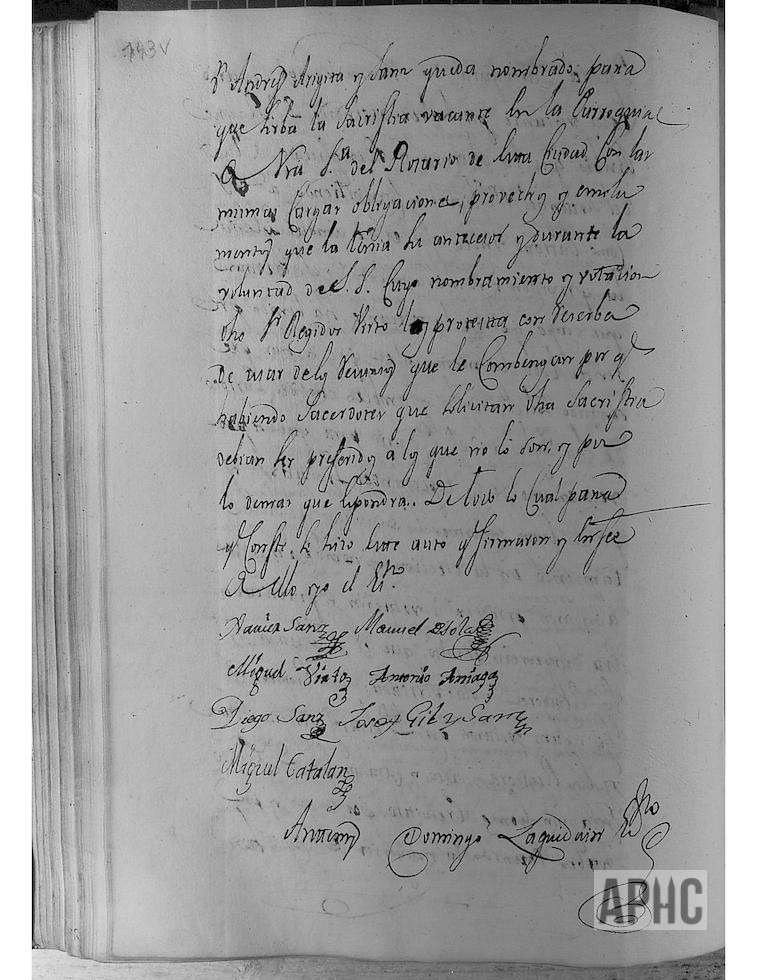 143v
Dn Andres Arigita y Sanz queda nombrado para
que sirba la Sacristia vacante en la Parroquial
de Nra Sa. del Rosario de esta Ciudad con las
mismas Cargas obligaciones, provechos y emolu
mentos que la tenia su antecesor y durante la
voluntad de S. S. Cuyo nombramiento y votacion
dho Sr Regidor Virto los protexta con reserba
de usar delos recursos que le Combengan por qe
habiendo Sacerdotes que solicitan dha Sacristia
debian ser preferidos a los que no lo son, y por
lo demas que expondra. De todo lo Cual para
qe Conste se hizo este auto qe firmaron y en fee
de ello yo el Esno.
Xavier Sanz Manuel
Miguel Virto Antonio Aniaga
Diego Sanz Josef Gil y Sanz
Miguel Catalan
Antemi Domingo Laquidain Esno
APHC